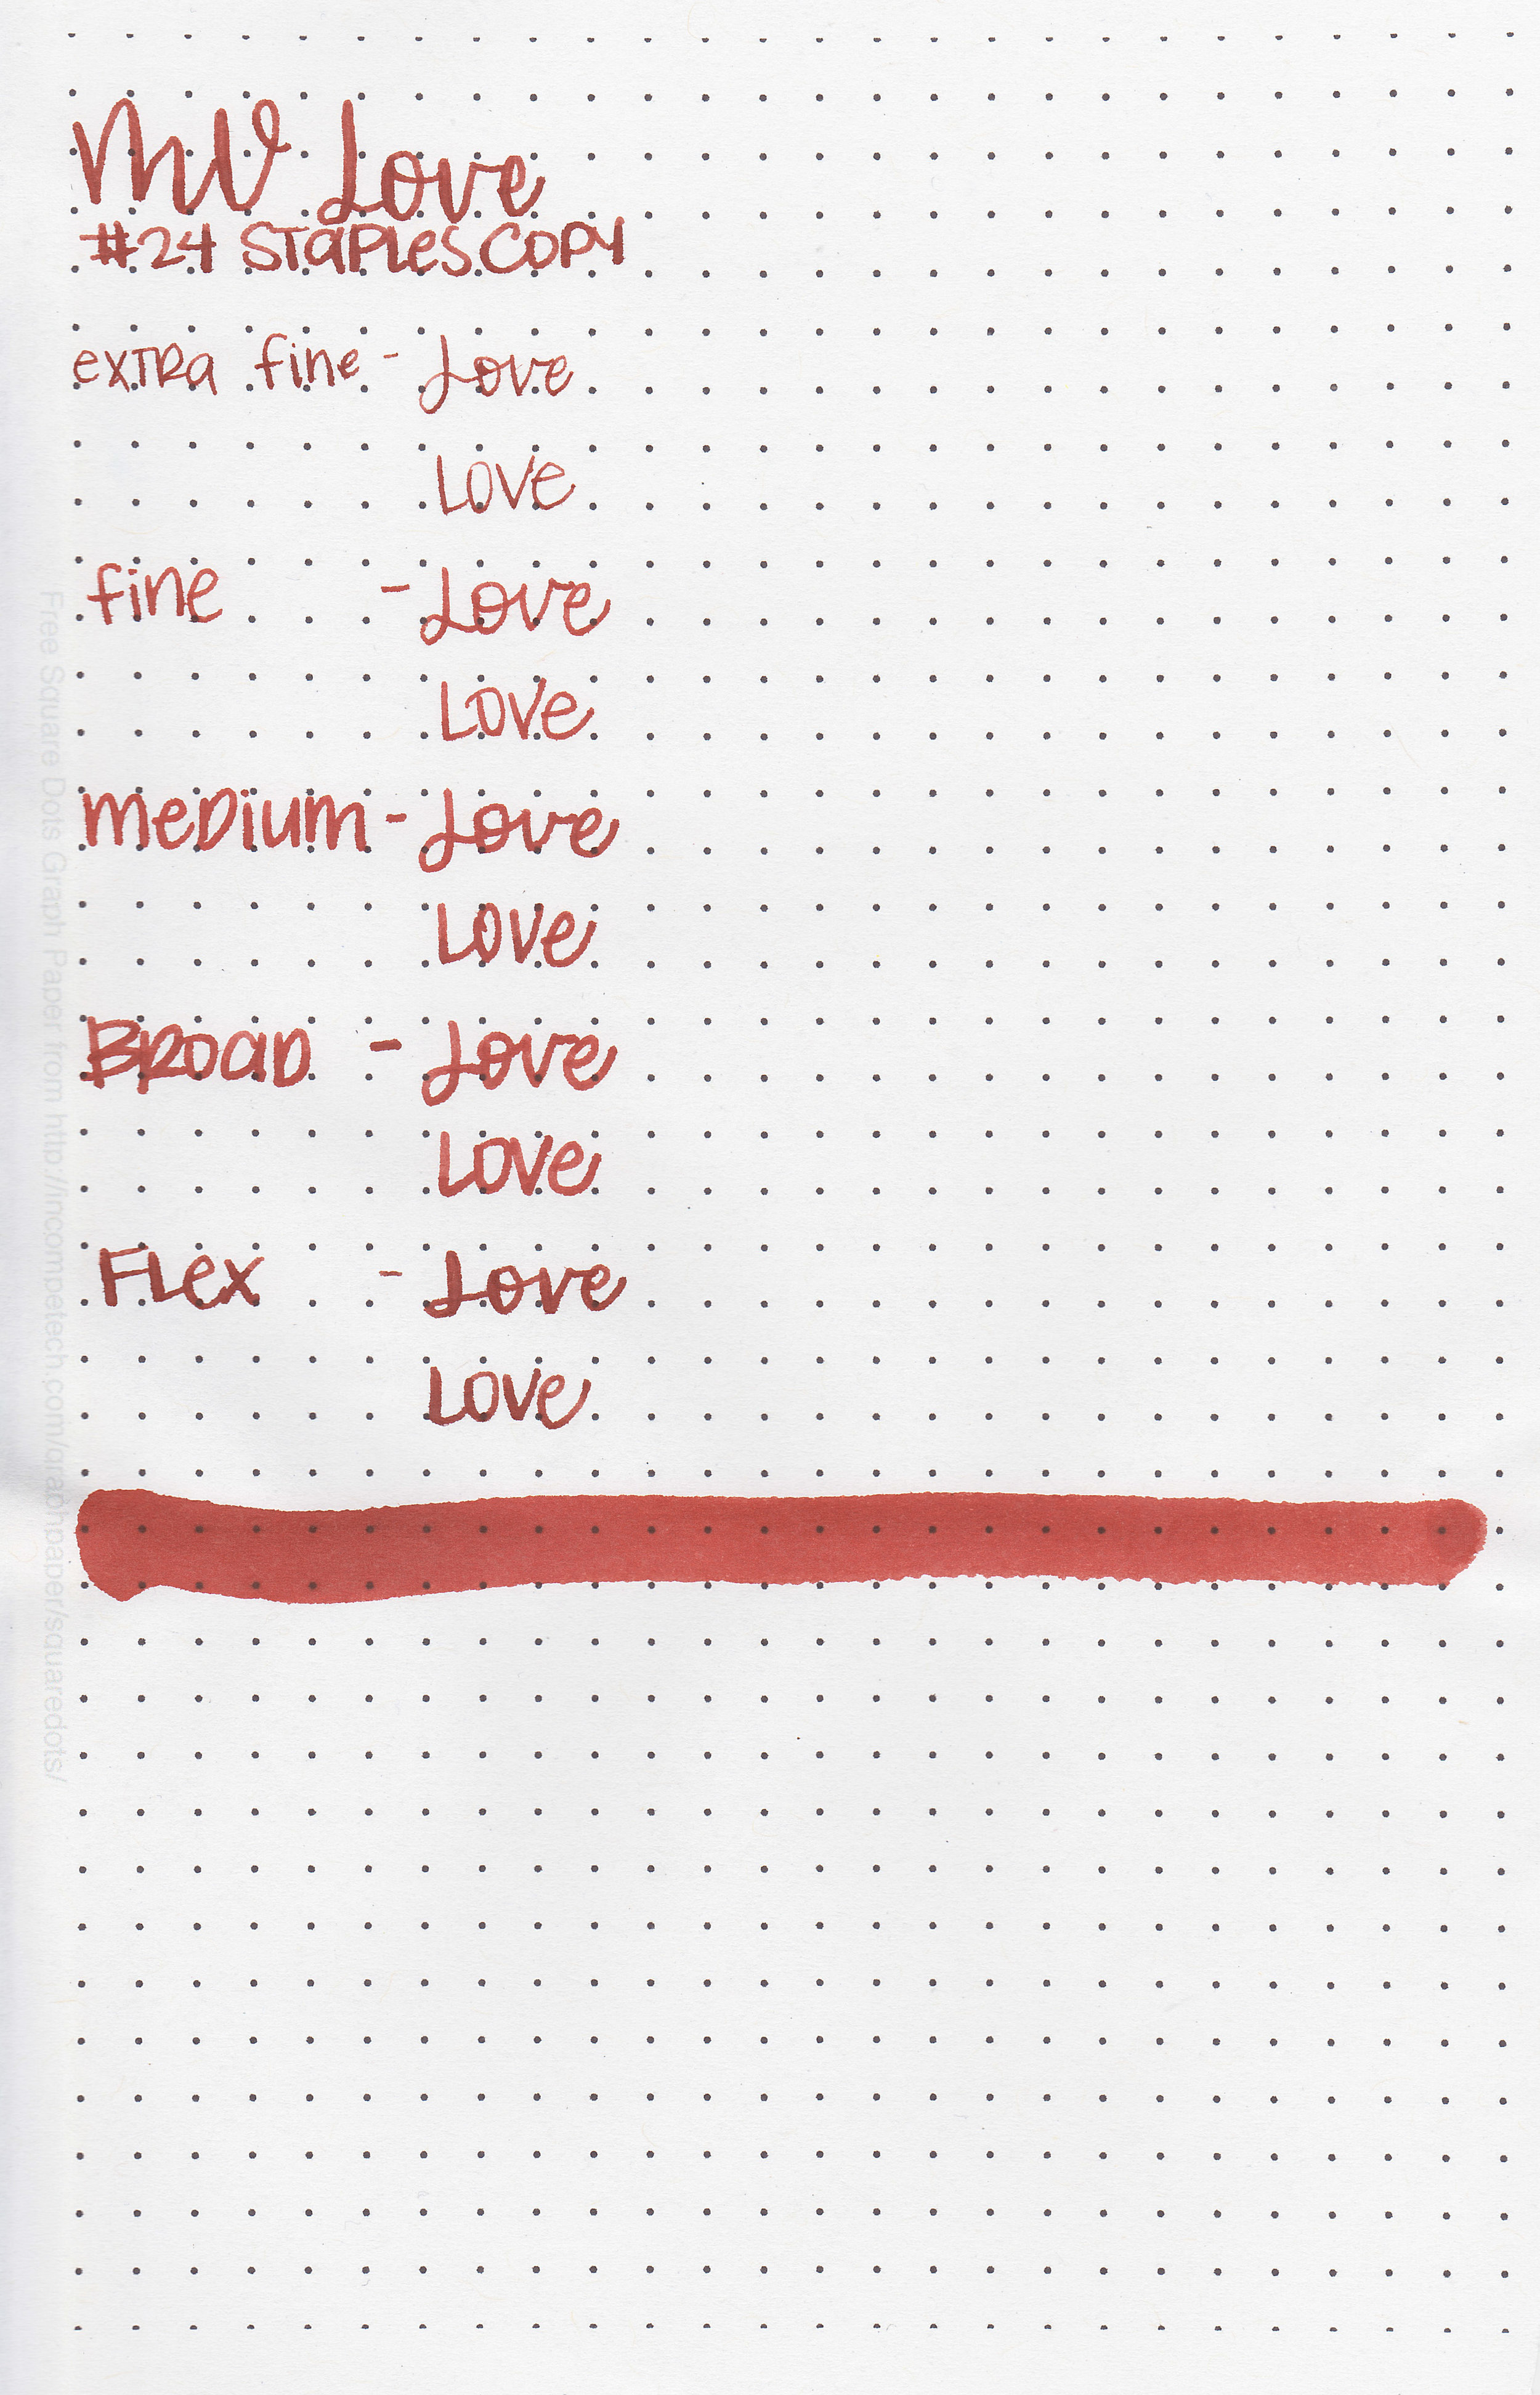 MV Love
#24 Staples Copy
extra fine - Love
Love
fine - Love
Love
medium - Love
Love
Broad - Love
Love
Flex - Love
Love
Free Square Dots Graph Paper from http://incompetech.com/graphpaper/squaredots/